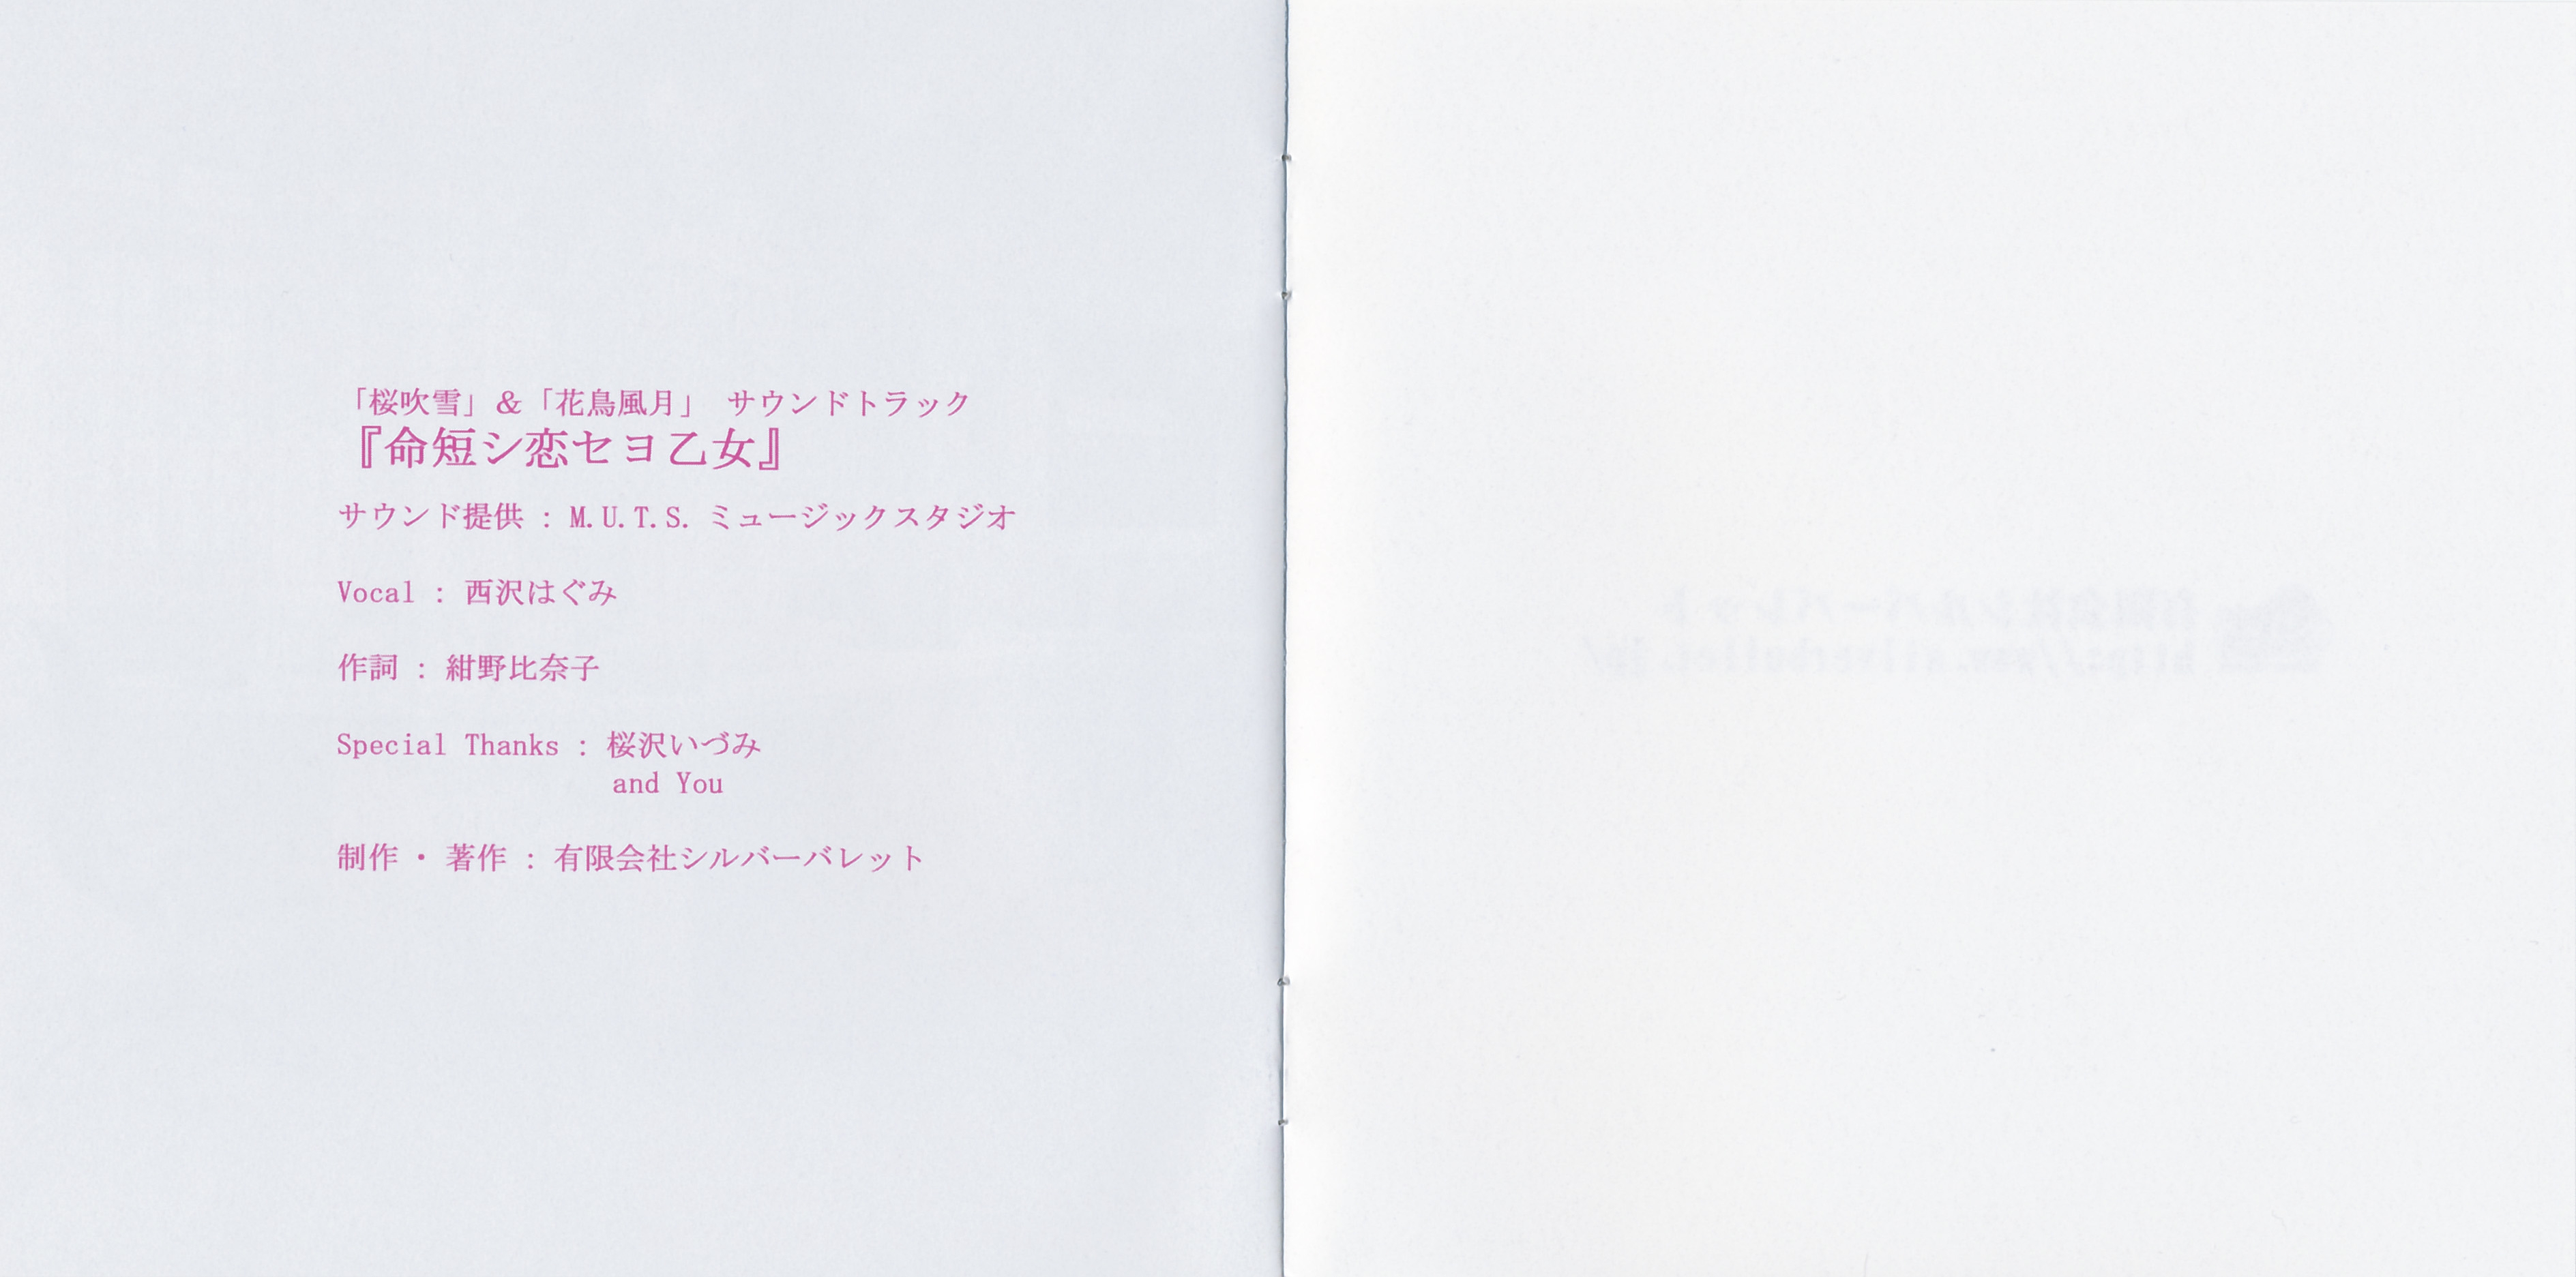 「桜吹雪」&「花鳥風月」 サウンドトラック
『命短シ恋セヨ乙女』
サウンド提供 : M.U.T.S. ミュージックスタジオ
Vocal : 西沢はぐみ
作詞 : 紺野比奈子
Special Thanks : 桜沢いづみ
and You
制作・著作 : 有限会社シルバーバレット
有限会社シルバーバレット
http://www.silverbullet.jp/